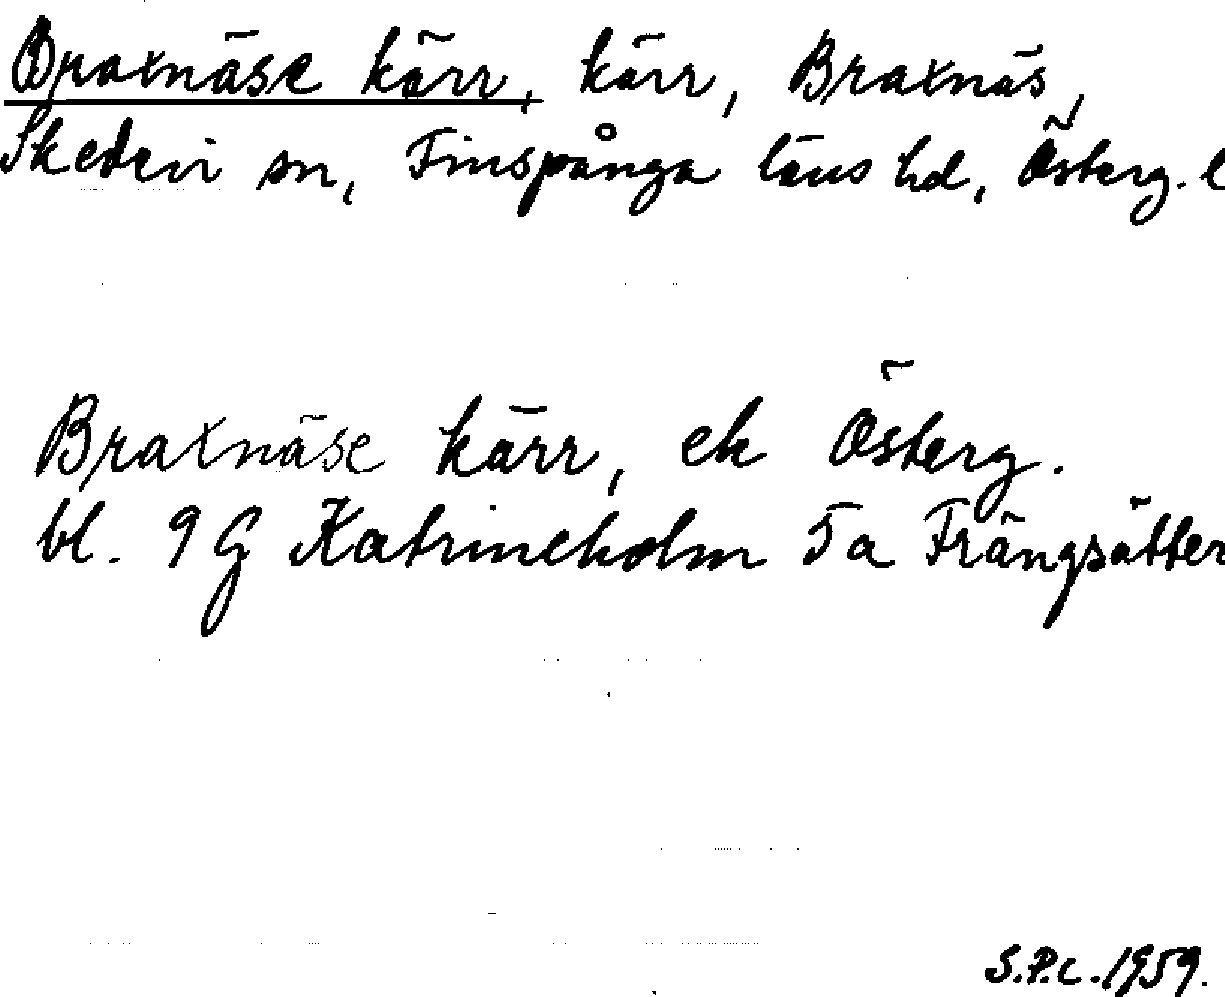 Braxnäse kärr, kärr, Braxnäs,
Skedevi sn, Finspånga läns hd, Österg. l
Braxnäse kärr, ek Österg.
bl. 9 G Katrineholm 5a Frängsätter
S.P.C. 1959.